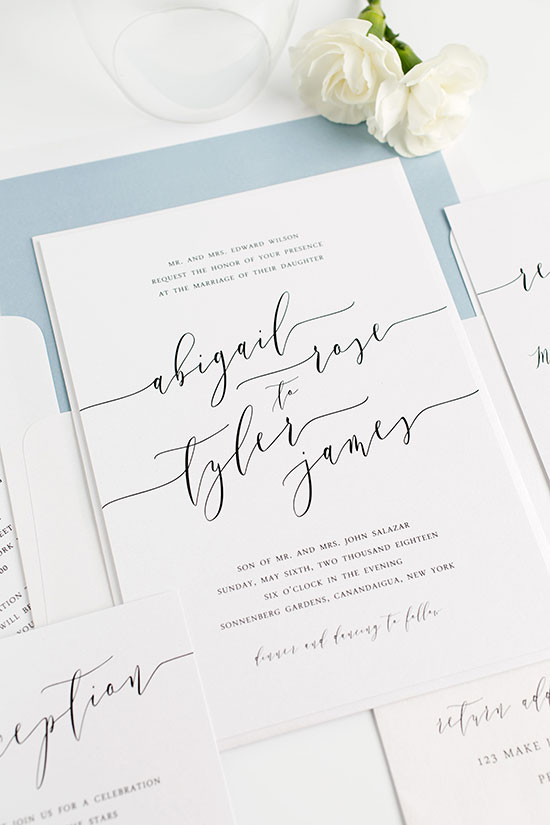 MR. AND MRS. EDWARD WILSON
REQUEST THE HONOR OF YOUR PRESENCE
AT THE MARRIAGE OF THEIR DAUGHTER
abigail
rose
to
tyler
james
SON OF MR. AND MRS. JOHN SALAZAR
SUNDAY, MAY SIXTH, TWO THOUSAND EIGHTEEN
SIX O'CLOCK IN THE EVENING
SONNENBERG GARDENS, CANANDAIGUA, NEW YORK
dinner and dancing to follow
WILL BE
eption
IN US FOR A CELEBRATION
THE STARS
re
M
return add
123 MAKE